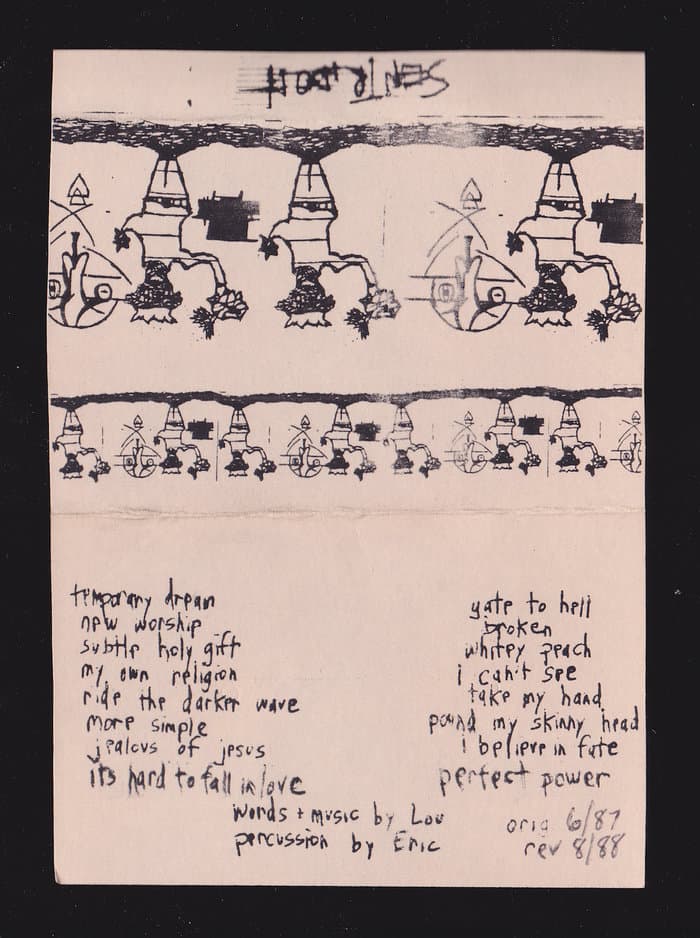 SENTRIDOH
temporary dream
new worship
subtle holy gift
my own religion
ride the darker wave
more simple
jealous of jesus
it's hard to fall in love
gate to hell
broken
whitey peach
i can't see
take my hand
pound my skinny head
i believe in fate
perfect power
words + music by Lou
percussion by Eric
orig 6/87
rev 8/88